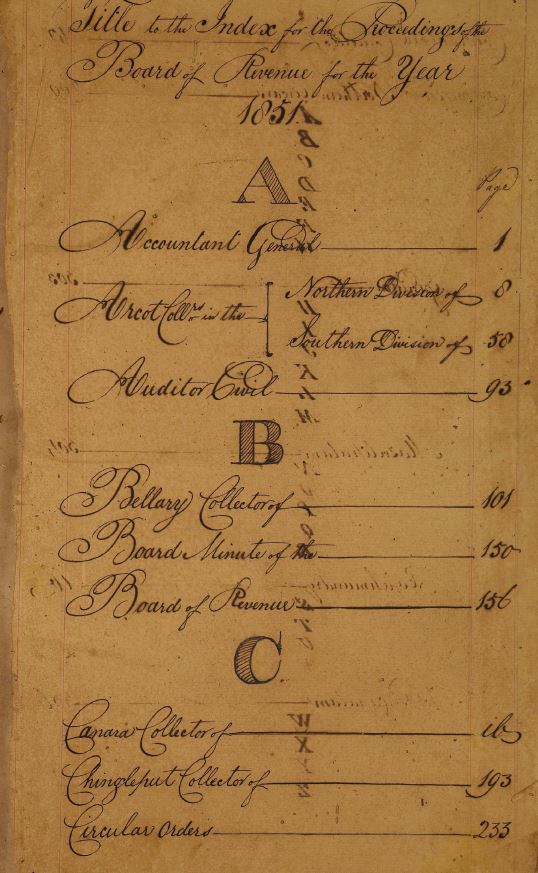 Title to the Index for the Proceedings of the
Board of Revenue for the Year
1851.
A
Page
Accountant General 1
Arcot Collrs. in the Northern Division of 8
Southern Division of 58
Auditor Civil 93
B
Bellary Collector of 101
Board Minute of the 150
Board of Revenue 156
C
Canara Collector of ib
Chingleput Collector of 193
Circular Orders 233